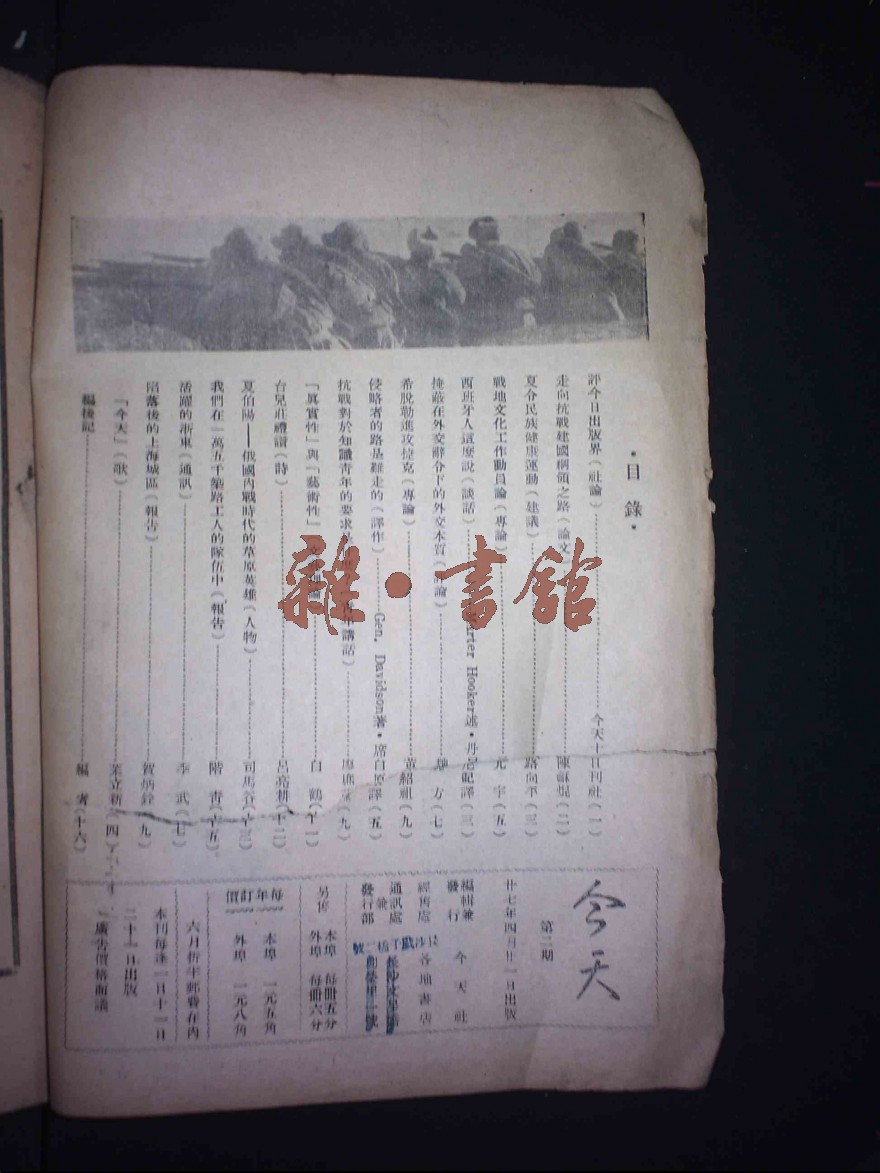 ·目錄·
評今日出版界(社論)………今天十日刊社(一)
走向抗戰建國綱領之路(論文)………陳(二)
夏令民族健康運動(建議)………路向平(三)
戰地文化工作動員論(專論)………元宇(五)
西班牙人這麼說(談話)………Hooker述·丹尼記譯(三)
掩蔽在外交辭令下的外交本質………方(七)
希脫勒進攻捷克(專論)………紹祖(九)
侵略者的路是難走的(譯作)………Gen. Davidson著·席口亞譯(五)
抗戰對於知識青年的要求………講話)………(九)
台兒莊禮讚(詩)………呂亮耕(十二)
「眞實性」與「藝術性」………白鶴(十一)
夏伯陽——俄國內戰時代的草原英雄(人物)………司馬(十三)
我們在一萬五千築路工人的隊伍中(報告)………階青(十五)
活躍的浙東(通訊)………李武(七)
陷落後的上海城區(報告)………賀炳銓(九)
「今天」(歌)………葉立新(四)
編後記………編者(十六)
今天
第二期
廿七年四月廿一日出版
編輯兼發行 今天社
經售處 各地書店
通訊處兼發行部
另售 本埠 每冊五分
外埠 每冊六分
每年訂價 本埠 一元五角
外埠 一元八角
六月折半郵費在內
本刊每逢一日十一日
二十一日出版
廣告價格面議
雜·書館